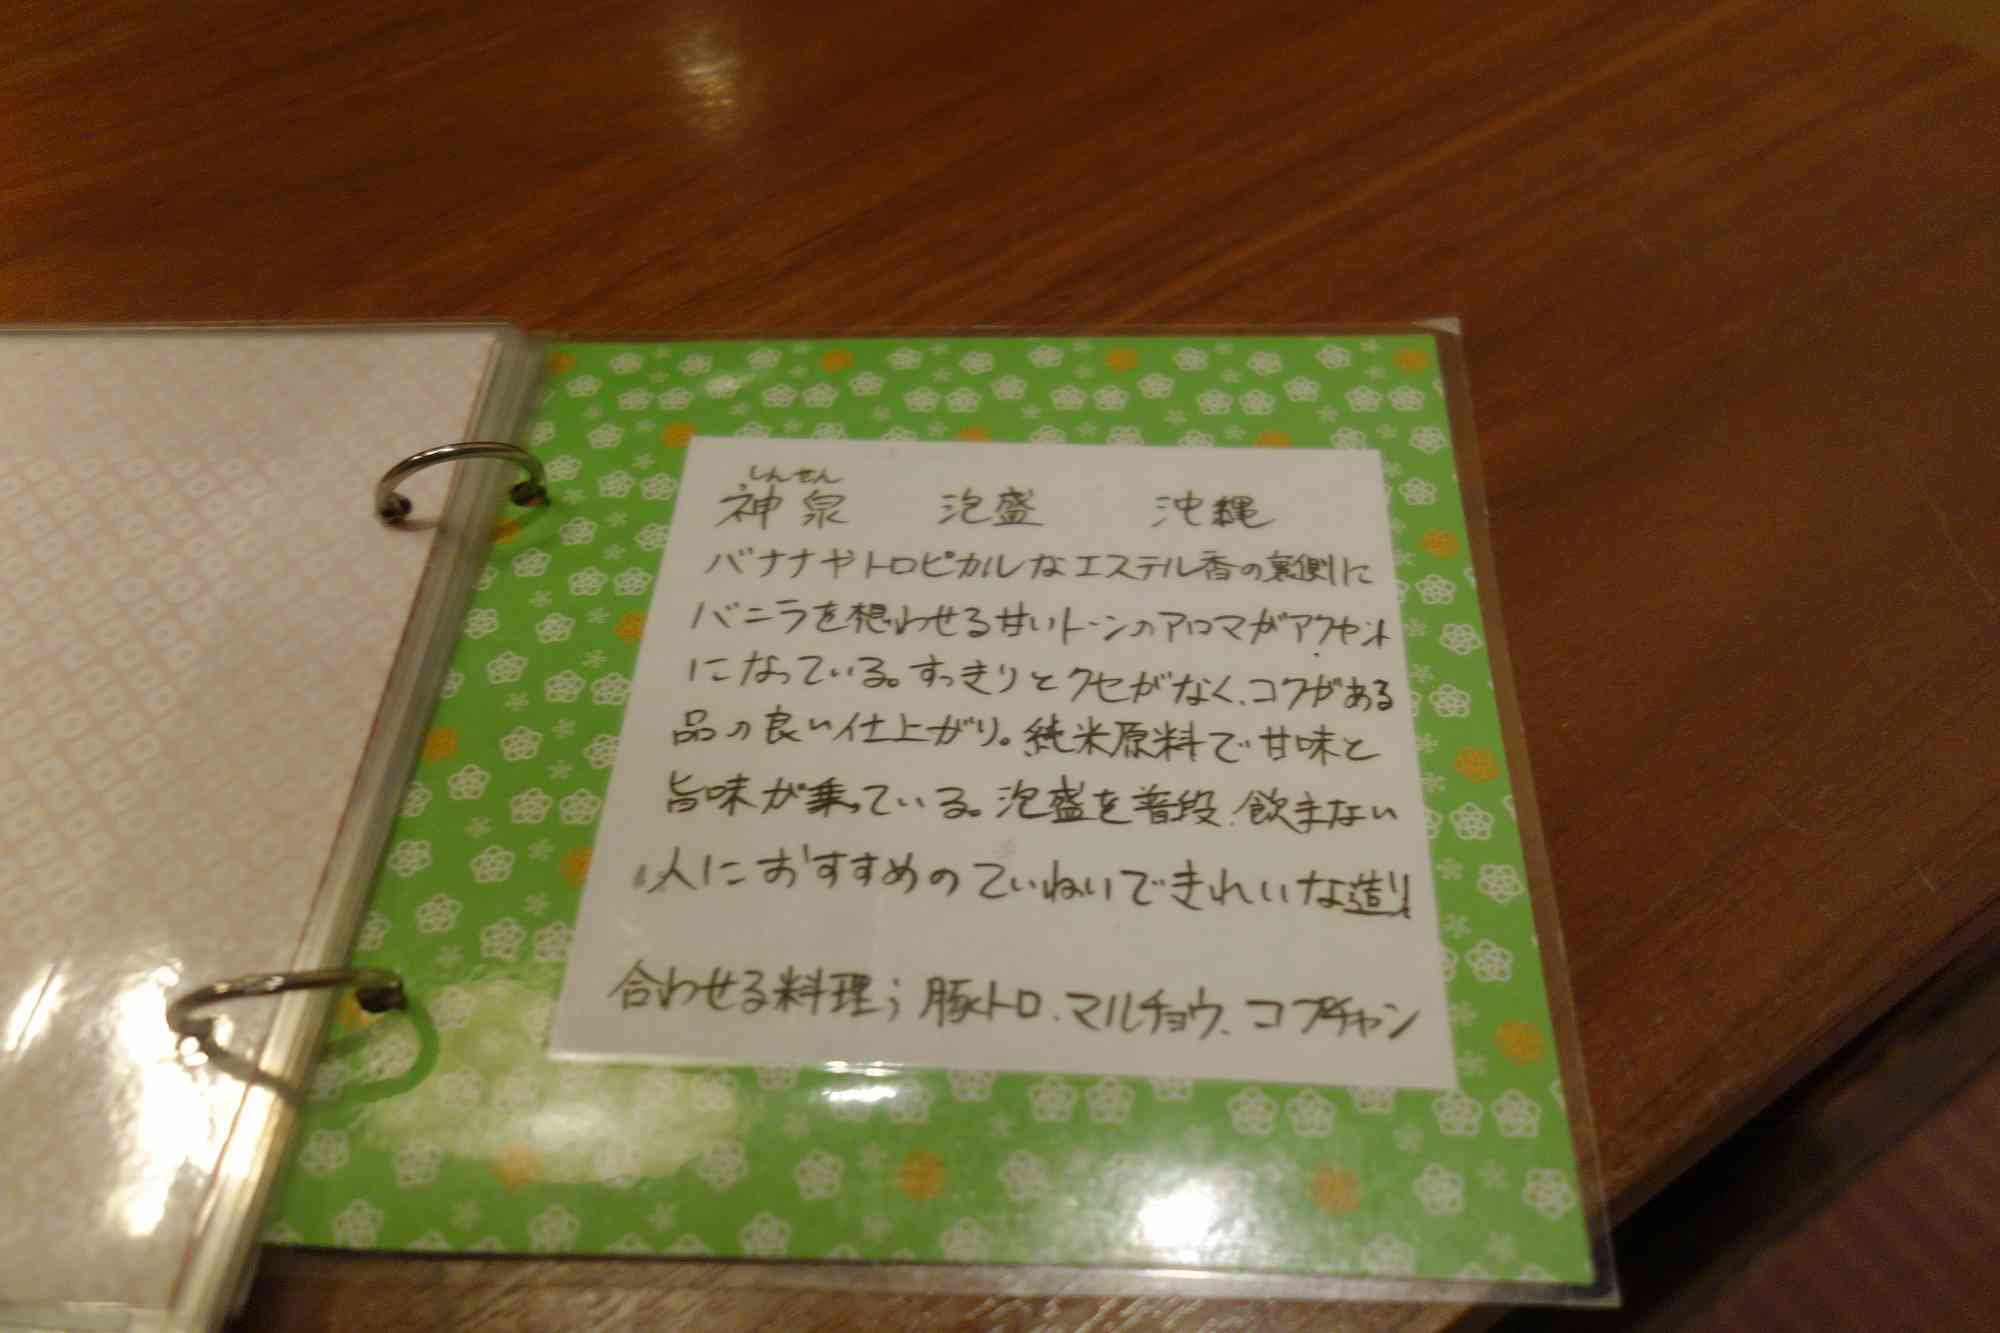 しんせん
神泉 泡盛 沖縄
バナナやトロピカルなエステル香の裏側に
バニラを想わせる甘いトーンのアロマがアクセント
になっている。すっきりとクセがなく、コクがある
品の良い仕上がり。純米原料で甘味と
旨味が乗っている。泡盛を普段、飲まない
人におすすめのていねいできれいな造り
合わせる料理；豚トロ、マルチョウ、コプチャン